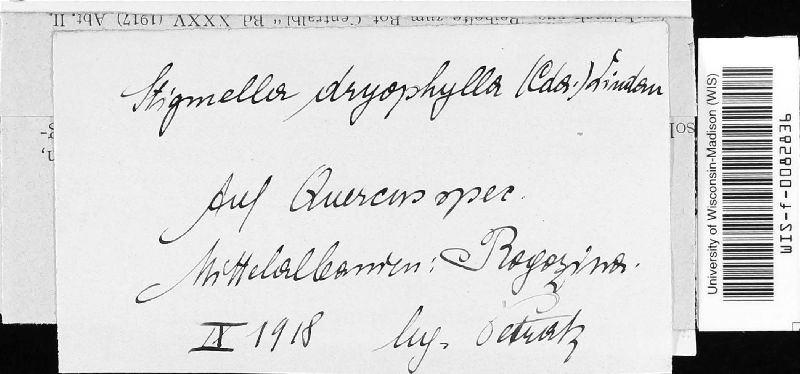 Beihefte zum Bot. Centralbl." Bd. XXXV (1917) Abt. II.
Stigmella dryophylla (Cda.) Lindau
Auf Quercus spec.
Mittelalbanien: Rogozina.
IX 1918 leg. Petrak
University of Wisconsin-Madison (WIS)
WIS-f-0082836